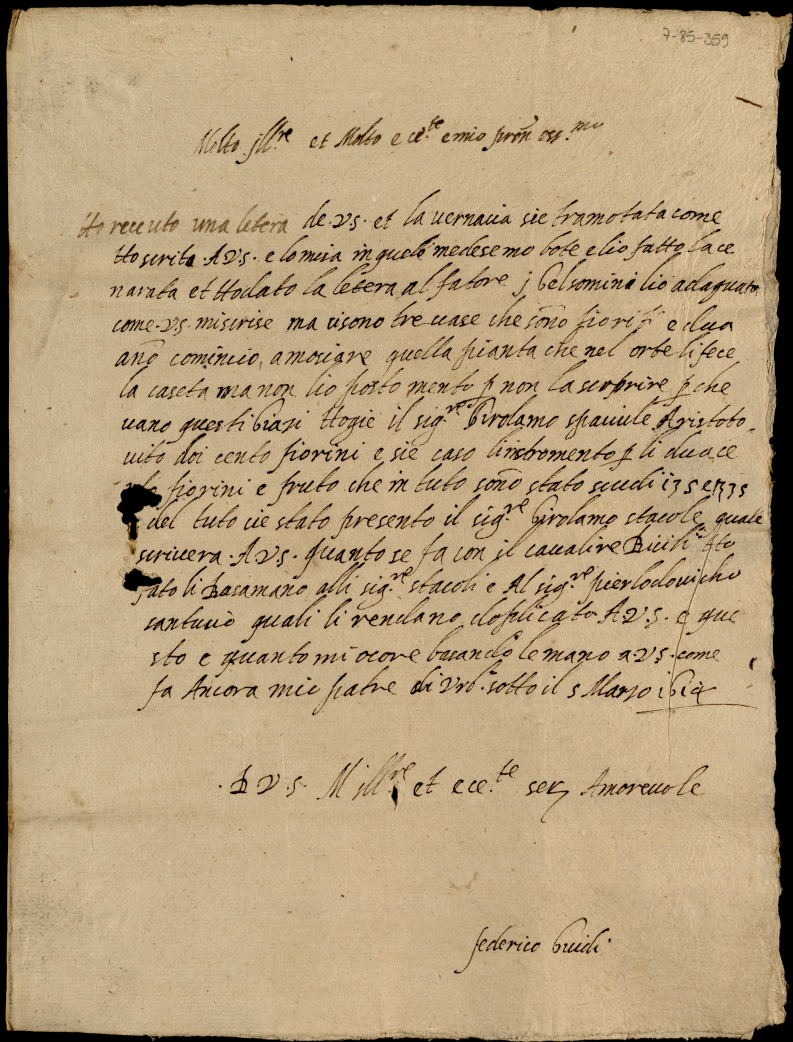 7-85-359
Molto Ill.re et Molto ecc.te e mio pron oss.mo
Ho receuto una letera de .V.S. et la vernacia sie tramotata come
Ho scrita .A.V.S. e lo misa in quelo medesemo bote e lio fatto la ce
narata et Ho dato la letera al fatore j Gelsomini lio adaquato
come .V.S. mi scrise ma visono tre vase che sono fioriti e dua
ano comincio, a mosigre quella pianta che nel orte li fece
la caseta ma non lio posto mento p non la scoprire p che
vano questi Giazi Hogie il sig.re Girolamo Aristoto
vito doi cento fiorini e sie caso linstromento p li duace
fiorini e fruto che in tuto sono stato scudi
del tuto vie stato presento il sig.re Girolamo stacole quale
scrivera .A.V.S. quanto se fa con il cavalire Guidi Ho
fato li basamano alli sig.re stacoli e Al sig.re pierlodovicho
santucio quali li rendano duplicato A.V.S. e que
sto e quanto mi ocore basando le mano a.V.S. come
fa Ancora mio patre di Urb. sotto il 5 Marzo 1614
.D.V.S. M Ill.re et ece.te ser. Amorevole
federico Guidi